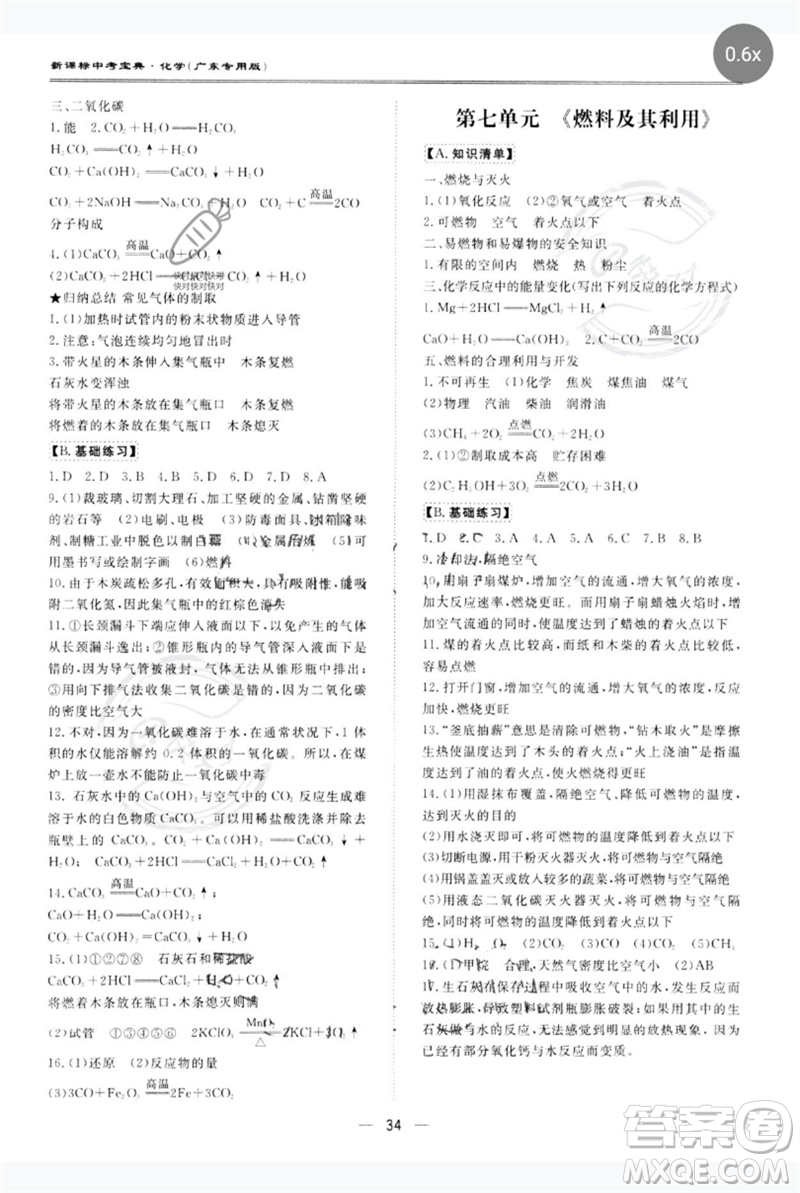 0.6x
新课标中考宝典·化学(广东专用版)
三、二氧化碳
1.能 2.CO₂+H₂O══H₂CO₃
H₂CO₃══CO₂↑+H₂O
CO₂+Ca(OH)₂══CaCO₃↓+H₂O
CO₂+2NaOH══Na₂CO₃+H₂O C+CO₂ 高温══2CO
分子构成
4.(1)CaCO₃ 高温══CaO+CO₂↑
(2)CaCO₃+2HCl══CaCl₂+H₂O+CO₂↑
快对快对快对
快对快对快对
★归纳总结 常见气体的制取
1.(1)加热时试管内的粉末状物质进入导管
2.注意:气泡连续均匀地冒出时
3.带火星的木条伸入集气瓶中 木条复燃
石灰水变浑浊
将带火星的木条放在集气瓶口 木条复燃
将燃着的木条放在集气瓶口 木条熄灭
【B.基础练习】
1.D 2.D 3.B 4.D 5.D 6.D 7.D 8.A
9.(1)裁玻璃、切割大理石、加工坚硬的金属、钻凿坚硬
的岩石等 (2)电刷、电极 (3)防毒面具、冰箱除味
剂、制糖工业中脱色以制白糖 (4)金属冶炼 (5)可
用墨书写或绘制字画 (6)燃料
10.由于木炭疏松多孔,有
附二氧化氮,因此集气瓶中的红棕色消失
11.长颈漏斗下端应伸入液面以下,以免产生的气体从
长颈漏斗逸出;②锥形瓶中的导气管深入液面以下是
错的,因为导气管被液封,气体无法从锥形瓶中排出;
③用向下排空气方法收集二氧化碳是错的,二氧化碳
的密度比空气大
12.不对,因为一氧化碳难溶于水,在通常状况下,1体
积的水仅能溶解约0.2体积的一氧化碳。所以,在煤
炉上放一壶水不能防止一氧化碳中毒
13.石灰水中Ca(OH)₂与空气中CO₂反应生成难
溶于水的CaCO₃,附着在瓶壁上,可用稀盐酸洗涤并除去
CO₂+Ca(OH)₂══CaCO₃↓+H₂O
CaCO₃+2HCl══CaCl₂+H₂O+CO₂↑
14.CaCO₃ 高温══CaO+CO₂↑
CaO+H₂O══Ca(OH)₂
CO₂+Ca(OH)₂══CaCO₃↓+H₂O
15.(1)①②⑦⑧ 石灰石和稀盐酸
CaCO₃+2HCl══CaCl₂+H₂O+CO₂↑
将燃着的木条放在瓶口,木条熄灭则满
(2)试管 ①③④⑤⑥ 2KClO₃ MnO₂══△ 2KCl+3O₂↑
16.(1)还原 (2)反应物的量
(3)3CO+Fe₂O₃ 高温══2Fe+3CO₂
第七单元 《燃料及其利用》
【A.知识清单】
一、燃烧与灭火
1.(1)氧化反应 (2)②氧气或空气 ③着火点
2.可燃物 空气 着火点以下
二、易燃物和易爆物的安全知识
1.有限的空间内 燃烧 热 粉尘
三、化学反应中的能量变化(写出下列反应的化学方程式)
1.Mg+2HCl══MgCl₂+H₂↑
CaO+H₂O══Ca(OH)₂ 2.C+CO₂ 高温══2CO
五、燃料的合理利用与开发
1.不可再生 (1)化学 焦炭 煤焦油 煤气
(2)物理 汽油 柴油 润滑油
(3)CH₄+2O₂ 点燃══CO₂+2H₂O
2.(1)②制取成本高 贮存困难
(2)2C₂H₂+5O₂ 点燃══4CO₂+2H₂O
【B.基础练习】
1.D 2.C 3.A 4.C 5.A 6.C 7.B 8.B
9.冷却法,隔绝空气
10.用扇子扇煤炉,增大空气的流通,增大氧气的浓度,
加快反应速率,燃烧更旺。而用扇子扇蜡烛时,虽增大
空气流通的同时,使温度降低到了蜡烛的着火点以下
11.煤的着火点比较高,而纸和木柴的着火点比较低,
容易点燃
12.打开门窗,增大空气的流通,增大氧气的浓度,加快
反应,使燃烧更旺
13.“釜底抽薪”意思是清除可燃物,“钻木取火”是摩擦
生热使温度达到了木头的着火点;“火上浇油”是指温
度达到了着火点的同时,增加可燃物,使其燃烧更旺
14.(1)用湿抹布覆盖,隔绝空气,同时也降低了温度,
达到灭火的目的
(2)用水浇灭即可,将可燃物的温度降到着火点以下
(3)切断电源,用干粉灭火器灭火,将可燃物与空气隔绝
(4)用锅盖盖灭或放入较多的蔬菜,将可燃物与空气隔绝
(5)用液态二氧化碳灭火器灭火,将可燃物与空气隔
绝,同时将可燃物的温度降低到着火点以下
16.(1)甲烷 合理,天然气密度比空气小 (2)AB
17.生石灰在保存过程中吸水,发生反应而
放热膨胀,导致塑料试剂瓶膨胀破裂;由于其中的生
石灰与水的反应,没有观察到明显的放热现象,因为
已经有部分氧化钙与水反应而变质。
34
答案圈
MXQE.COM